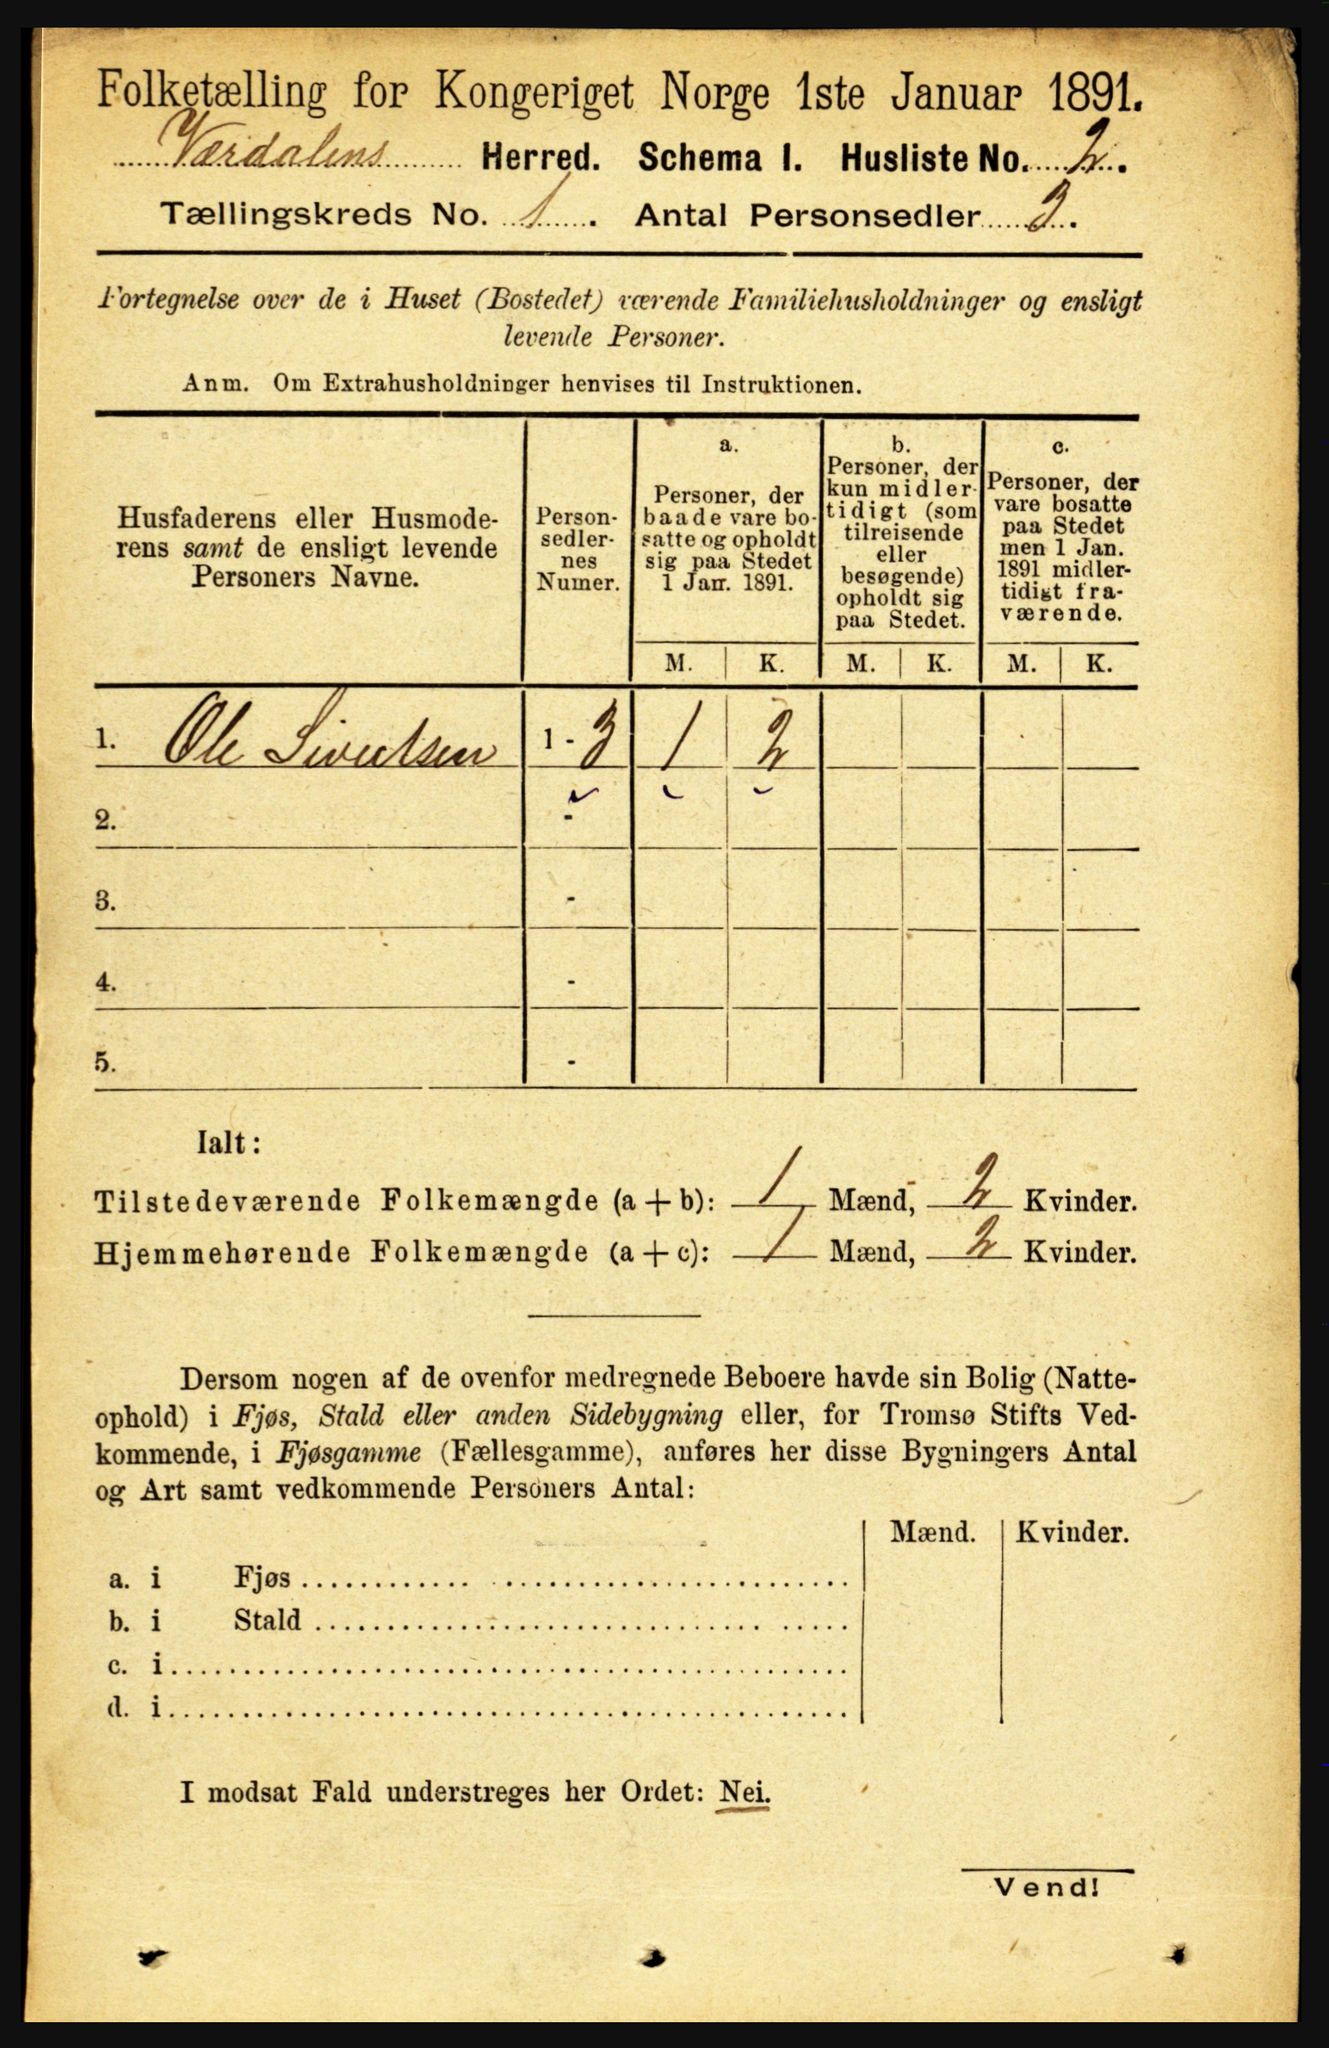 Folketælling for Kongeriget Norge 1ste Januar 1891.
Værdalens Herred. Schema I. Husliste No. 2.
Tællingskreds No. 1. Antal Personsedler 3.
Fortegnelse over de i Huset (Bostedet) værende Familiehusholdninger og ensligt
levende Personer.
Anm. Om Extrahusholdninger henvises til Instruktionen.
Husfaderens eller Husmode-
rens samt de ensligt levende
Personers Navne.
Person-
sedler-
nes
Numer.
a.
Personer, der
baade vare bo-
satte og opholdt
sig paa Stedet
1 Jan. 1891.
b.
Personer, der
kun midler-
tidigt (som
tilreisende
eller
besøgende)
opholdt sig
paa Stedet.
c.
Personer, der
vare bosatte
paa Stedet
men 1 Jan.
1891 midler-
tidigt fra-
værende.
M. K. M. K. M. K.
1. Ole Sivertsen 1 - 3 1 2
2. -
3. -
4. -
5. -
Ialt:
Tilstedeværende Folkemængde (a + b): 1 Mænd, 2 Kvinder.
Hjemmehørende Folkemængde (a + c): 1 Mænd, 2 Kvinder.
Dersom nogen af de ovenfor medregnede Beboere havde sin Bolig (Natte-
ophold) i Fjøs, Stald eller anden Sidebygning eller, for Tromsø Stifts Ved-
kommende, i Fjøsgamme (Fællesgamme), anføres her disse Bygningers Antal
og Art samt vedkommende Personers Antal:
Mænd. Kvinder.
a. i Fjøs
b. i Stald
c. i
d. i
I modsat Fald understreges her Ordet: Nei.
Vend!